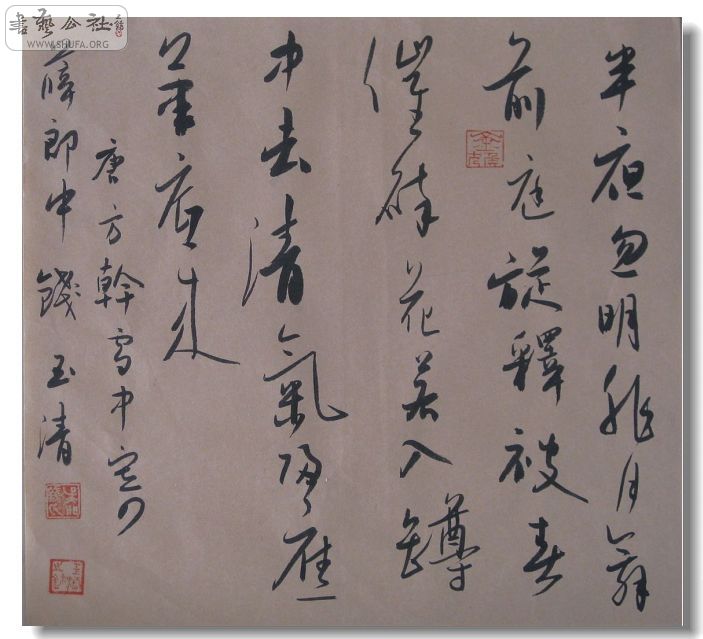 書藝公社
WWW.SHUFA.ORG
半夜忽明非月舞
前庭旋釋被春
催碎花若入罇
中去清氣歸應
筆底来
唐方幹雪中寄
薛郎中 錢玉清